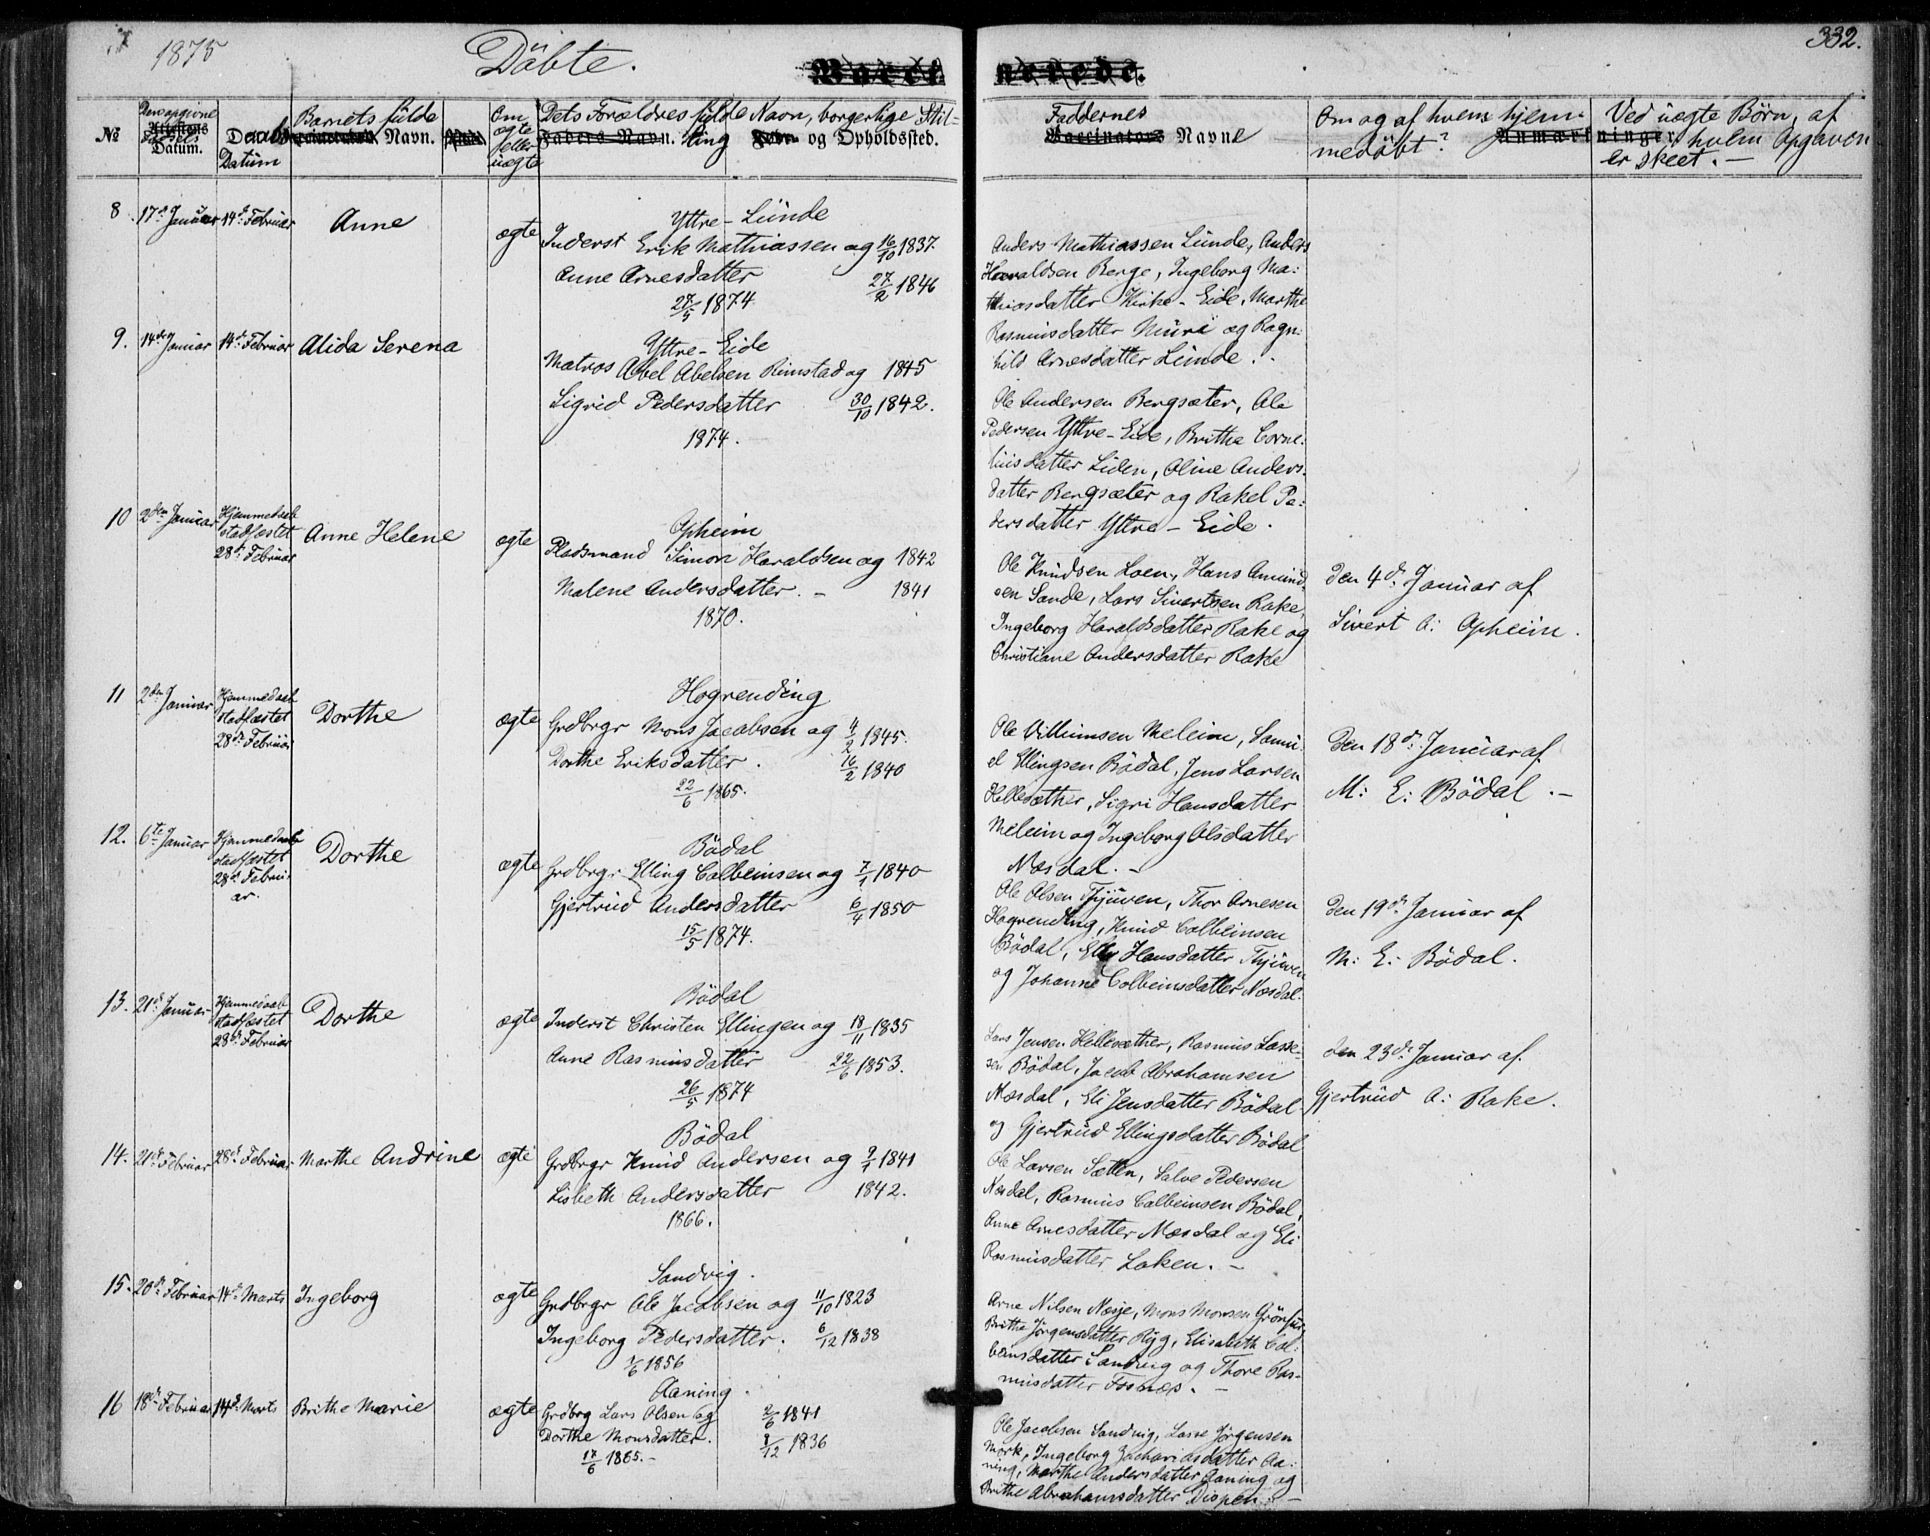 1875
Döbte.
332.
№
Datum.
Daabs Datum
Barnets fulde Navn.
Om ægte eller uægte
Dets Forældres fulde Navn, borgerlige Stil-
ling og Opholdsted.
Faddernes Navne
Om og af hvem hjem-
medöbt?
Ved uægte Börn, af
hvem Opgaven
er skeet. —
8 17de Januar 14de Februar Anne ægte
Yttre-Lunde
Inderst Erik Mathiassen og 16/10 1837.
Anne Arnesdatter 27/2 1846
27/5 1874
Anders Mathiassen Lunde, Anders
Haraldsen Berge, Ingeborg Ma:
thiasdatter Kirke-Eide, Marthe
Rasmusdatter Muri og Ragn:
hild Arnesdatter Lunde.
9. 14de Januar 14de Februar Alida Serena
Yttre-Eide
Matros Abel Abelsen Rimstad og 1845
Sigrid Pedersdatter 30/10 1842.
1874.
Ole Andersen Bergsæter, Ole
Pedersen Yttre-Eide, Brithe Corne:
liusdatter Liden, Oline Anders-
datter Bergsæter og Rakel Pe:
dersdatter Yttre-Eide.
10 2den Januar Hjemmedaab
stadfæstet
28de Februar
Anne Helene ægte
Opheim
Pladsmand Simon Haraldsen og 1842
Malene Andersdatter. — 1841
1870.
Ole Knudsen Loen, Hans Amund
sen Sande, Lars Sivertsen Rake,
Ingeborg Haraldsdatter Rake og
Christiane Andersdatter Rake
Den 4de Januar af
Sivert A: Opheim.
11 2den Januar Hjemmedaab
stadfæstet
28de Februar
Dorthe ægte
Hogrending
Grdbrgr Mons Jacobsen og 4/2 1845.
Dorthe Eriksdatter. 16/2 1840
22/6 1865.
Ole Villumsen Meleim, Samu
el Ellingsen Bödal, Jens Larsen
Hellesæther, Sigri Hansdatter
Meleim og Ingeborg Olsdatter
Næsdal. —
Den 18de Januar af
M: E: Bödal. —
12. 6te Januar Hjemmedaab
stadfæstet
28de Febru:
ar.
Dorthe ægte
Bödal
Grdbrgr Elling Colbeinsen og 7/1 1840
Gjertrud Andersdatter 6/4 1850
15/5 1874.
Ole Olsen Thjuven, Thor Arnesen
Hogrending, Knud Colbeinsen
Bödal, Hansdatter Thjuven
og Johanne Colbeinsdatter Næsdal.
Den 19de Januar af
M: E: Bödal.
13. 21de Januar Hjemmedaab
stadfæstet
28de Februar
Dorthe ægte
Bödal
Inderst Christen Ellingen og 18/11 1835
Anne Rasmusdatter 22/6 1853.
26/5 1874
Lars Jensen Hellesæther, Rasmus Lasse-
sen Bödal, Jacob Abrahamsen
Næsdal, Eli Jensdatter Bödal
og Gjertrud Ellingsdatter Bödal
den 23de Januar af
Gjertrud A: Rake.
14. 21de Februar 28de Februar Marthe Andrine ægte
Bödal
Grdbrgr Knud Andersen og 9/1 1841
Lisbeth Andersdatter 1842.
1866.
Ole Larsen Sætten, Salve Pedersen
Nesdal, Rasmus Colbeinsen Bödal,
Anne Arnesdatter Næsdal og Eli
Rasmusdatter Loken. —
15. 20de Februar 14de Marts Ingeborg ægte
Sandvig.
Grdbrgr Ole Jacobsen og 11/10 1823
Ingeborg Pedersdatter. 6/12 1838
1/6 1856
Arne Nilsen Nesje, Mons Monsen
Brithe Jörgensdatter Ryg, Elisabeth Col:
beinsdatter Sandvig og Thore Ras-
musdatter Fosnæs. —
16 18de Februar 14de Marts Brithe Marie ægte
Aaning.
Grdbrg Lars Olsen og 2/6 1841
Dorthe Monsdatter. 8/12 1836
17/6 1865. —
Ole Jacobsen Sandvig, Lasse Jörgensen
Mork, Ingeborg Zachariasdatter Aa:
ning, Marthe Andersdatter Aaning og
Brithe Abrahamsdatter Dispen. —